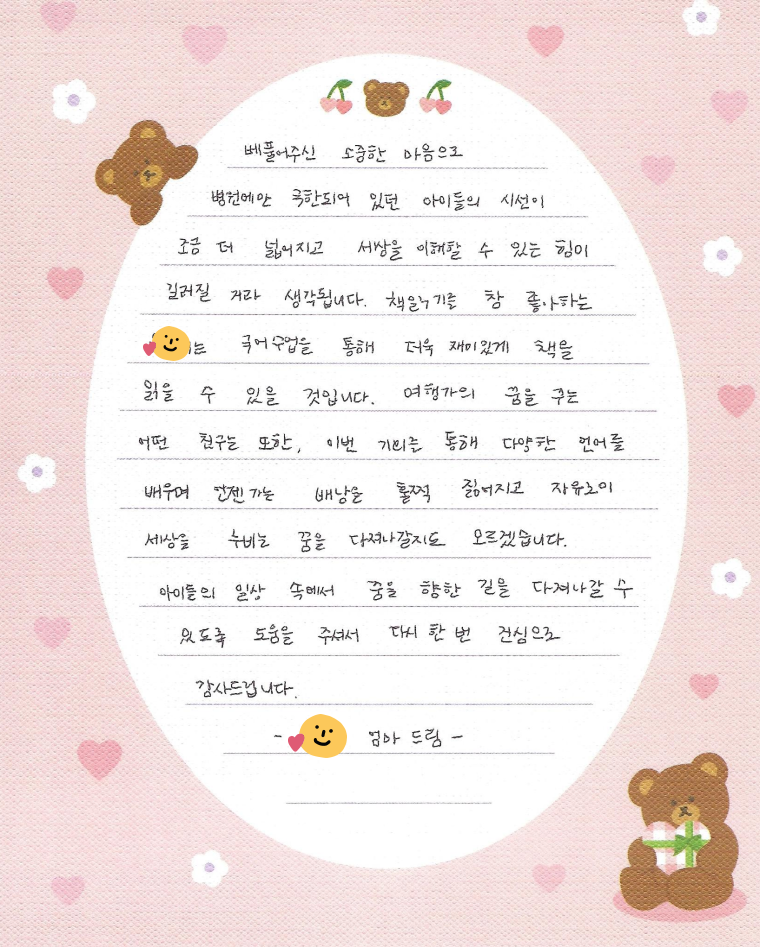 베풀어주신 소중한 마음으로
병원에만 국한되어 있던 아이들의 시선이
조금 더 넓어지고 세상을 이해할 수 있는 힘이
길러질 거라 생각됩니다. 책읽기를 참 좋아하는
는 국어수업을 통해 더욱 재미있게 책을
읽을 수 있을 것입니다. 여행가의 꿈을 꾸는
어떤 친구는 또한, 이번 기회를 통해 다양한 언어를
배우며 언젠가는 배낭을 훌쩍 짊어지고 자유로이
세상을 누비는 꿈을 다져나갈지도 모르겠습니다.
아이들의 일상 속에서 꿈을 향한 길을 다져나갈 수
있도록 도움을 주셔서 다시 한 번 진심으로
감사드립니다.
- 엄마 드림 -